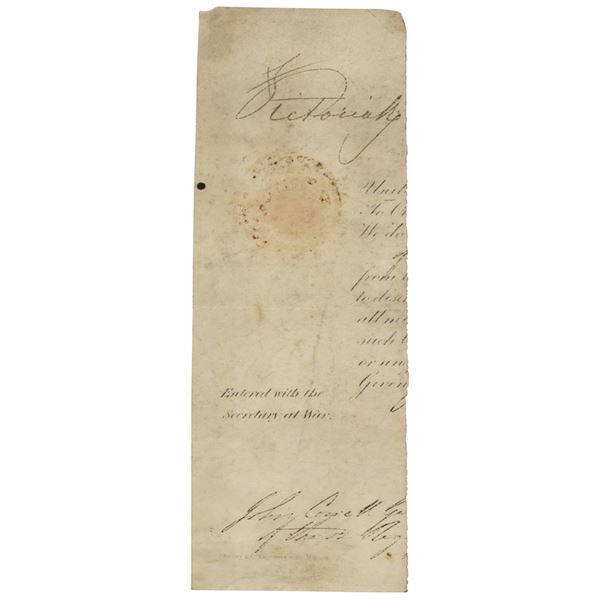 Victoria R
Unit
To Ch
We do
from t
to disch
all m
such O
or an
Given
Entered with the
Secretary at War.
John
of the